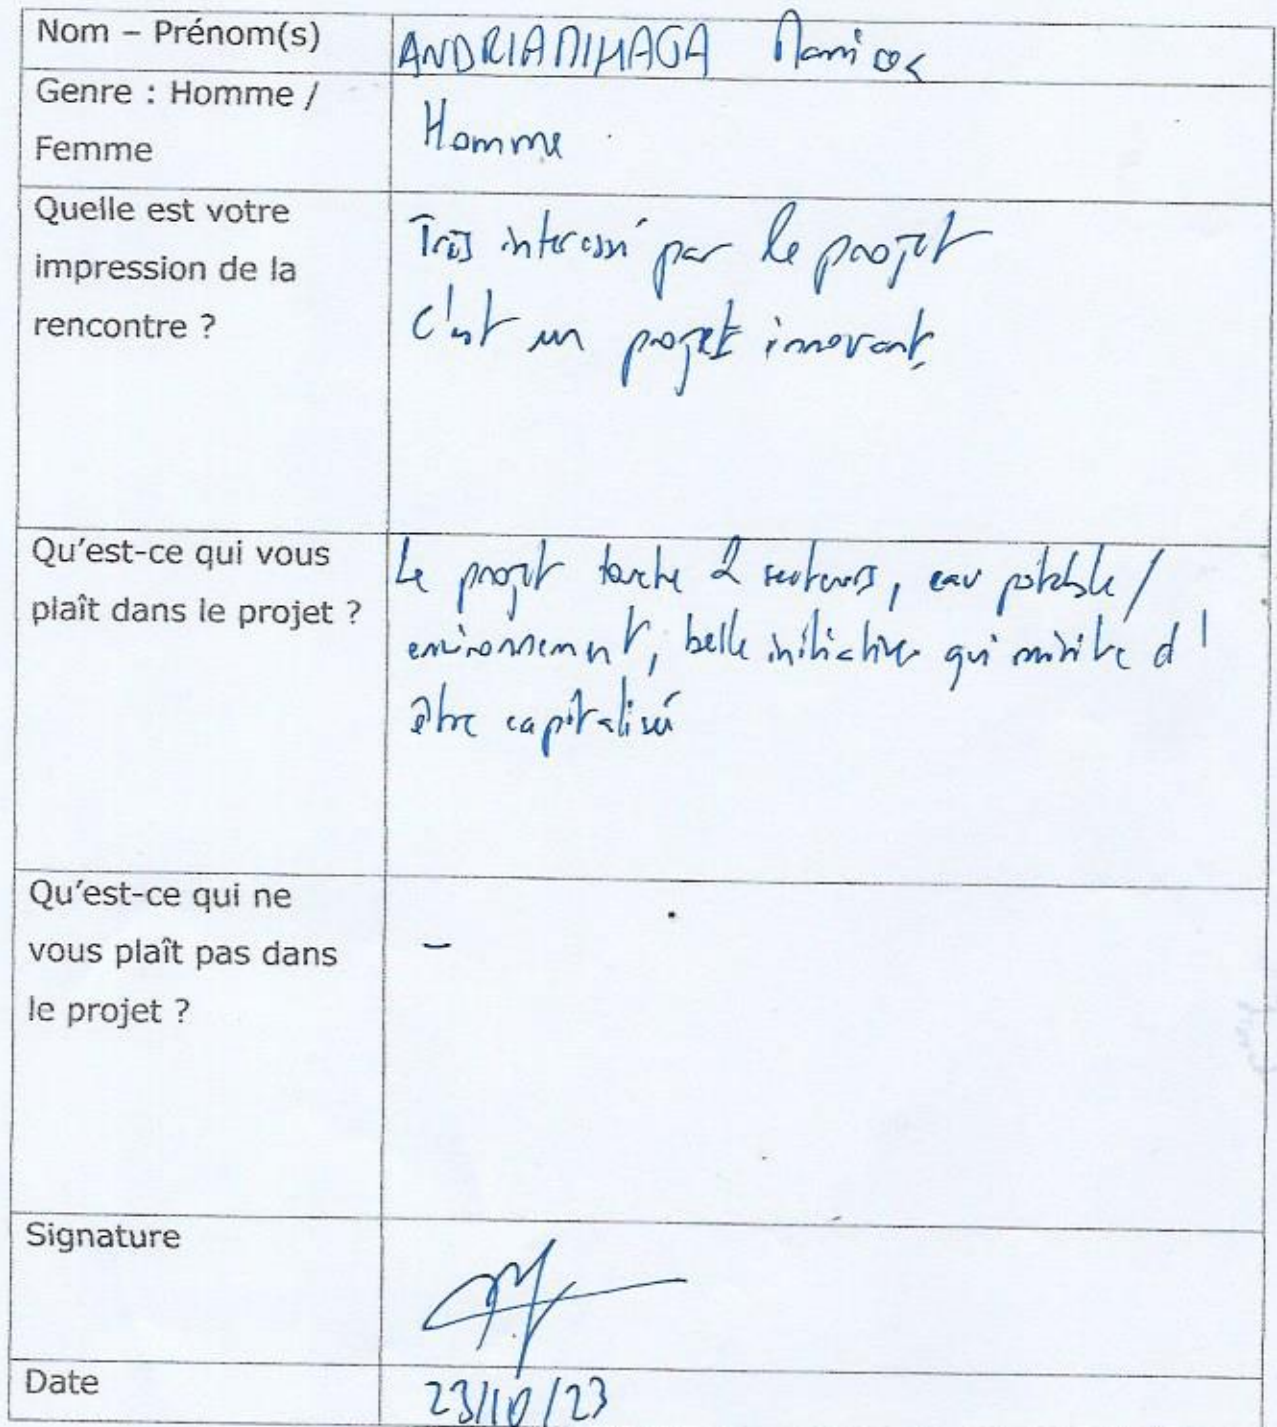 Nom – Prénom(s)
ANDRIANIHAGA
Genre : Homme /
Femme
Homme
Quelle est votre
impression de la
rencontre ?
Très interessé par le projet
C'est un projet innovant,
Qu'est-ce qui vous
plaît dans le projet ?
Le projet touche 2 secteurs, eau potable /
environnement, belle initiative qui mérite d'
être capitalisé
Qu'est-ce qui ne
vous plaît pas dans
le projet ?
-
Signature
Date
23/10/23